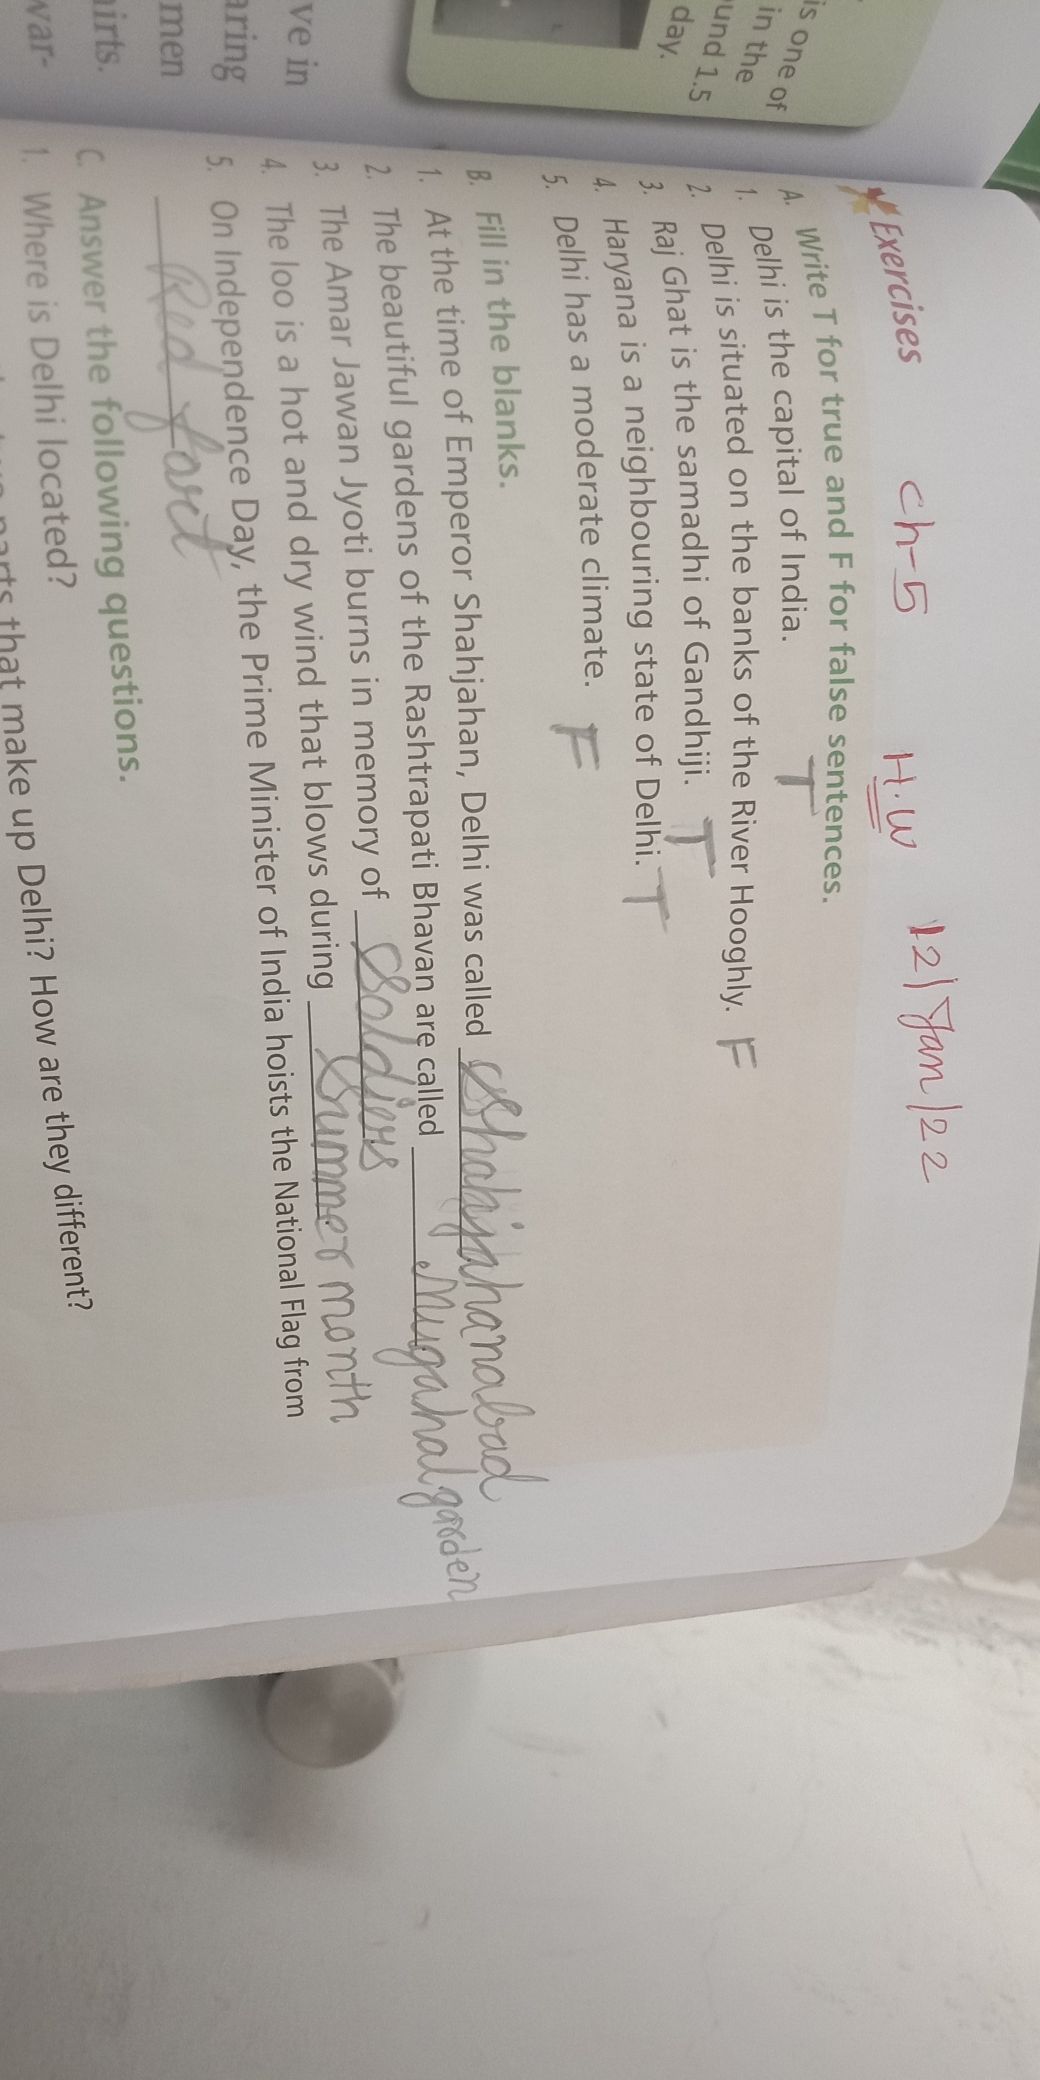 is one of
in the
und 1.5
day.
ve in
aring
men
hirts.
war-
Exercises Ch-5 H.W 12/Jan/22
A. Write T for true and F for false sentences.
1. Delhi is the capital of India. T
2. Delhi is situated on the banks of the River Hooghly. F
3. Raj Ghat is the samadhi of Gandhiji. T
4. Haryana is a neighbouring state of Delhi. T
5. Delhi has a moderate climate. F
B. Fill in the blanks.
1. At the time of Emperor Shahjahan, Delhi was called Shahjahanabad
2. The beautiful gardens of the Rashtrapati Bhavan are called Mugahal garden
3. The Amar Jawan Jyoti burns in memory of soldiers
4. The loo is a hot and dry wind that blows during summer month
5. On Independence Day, the Prime Minister of India hoists the National Flag from
Red fort
C. Answer the following questions.
1. Where is Delhi located?
parts that make up Delhi? How are they different?